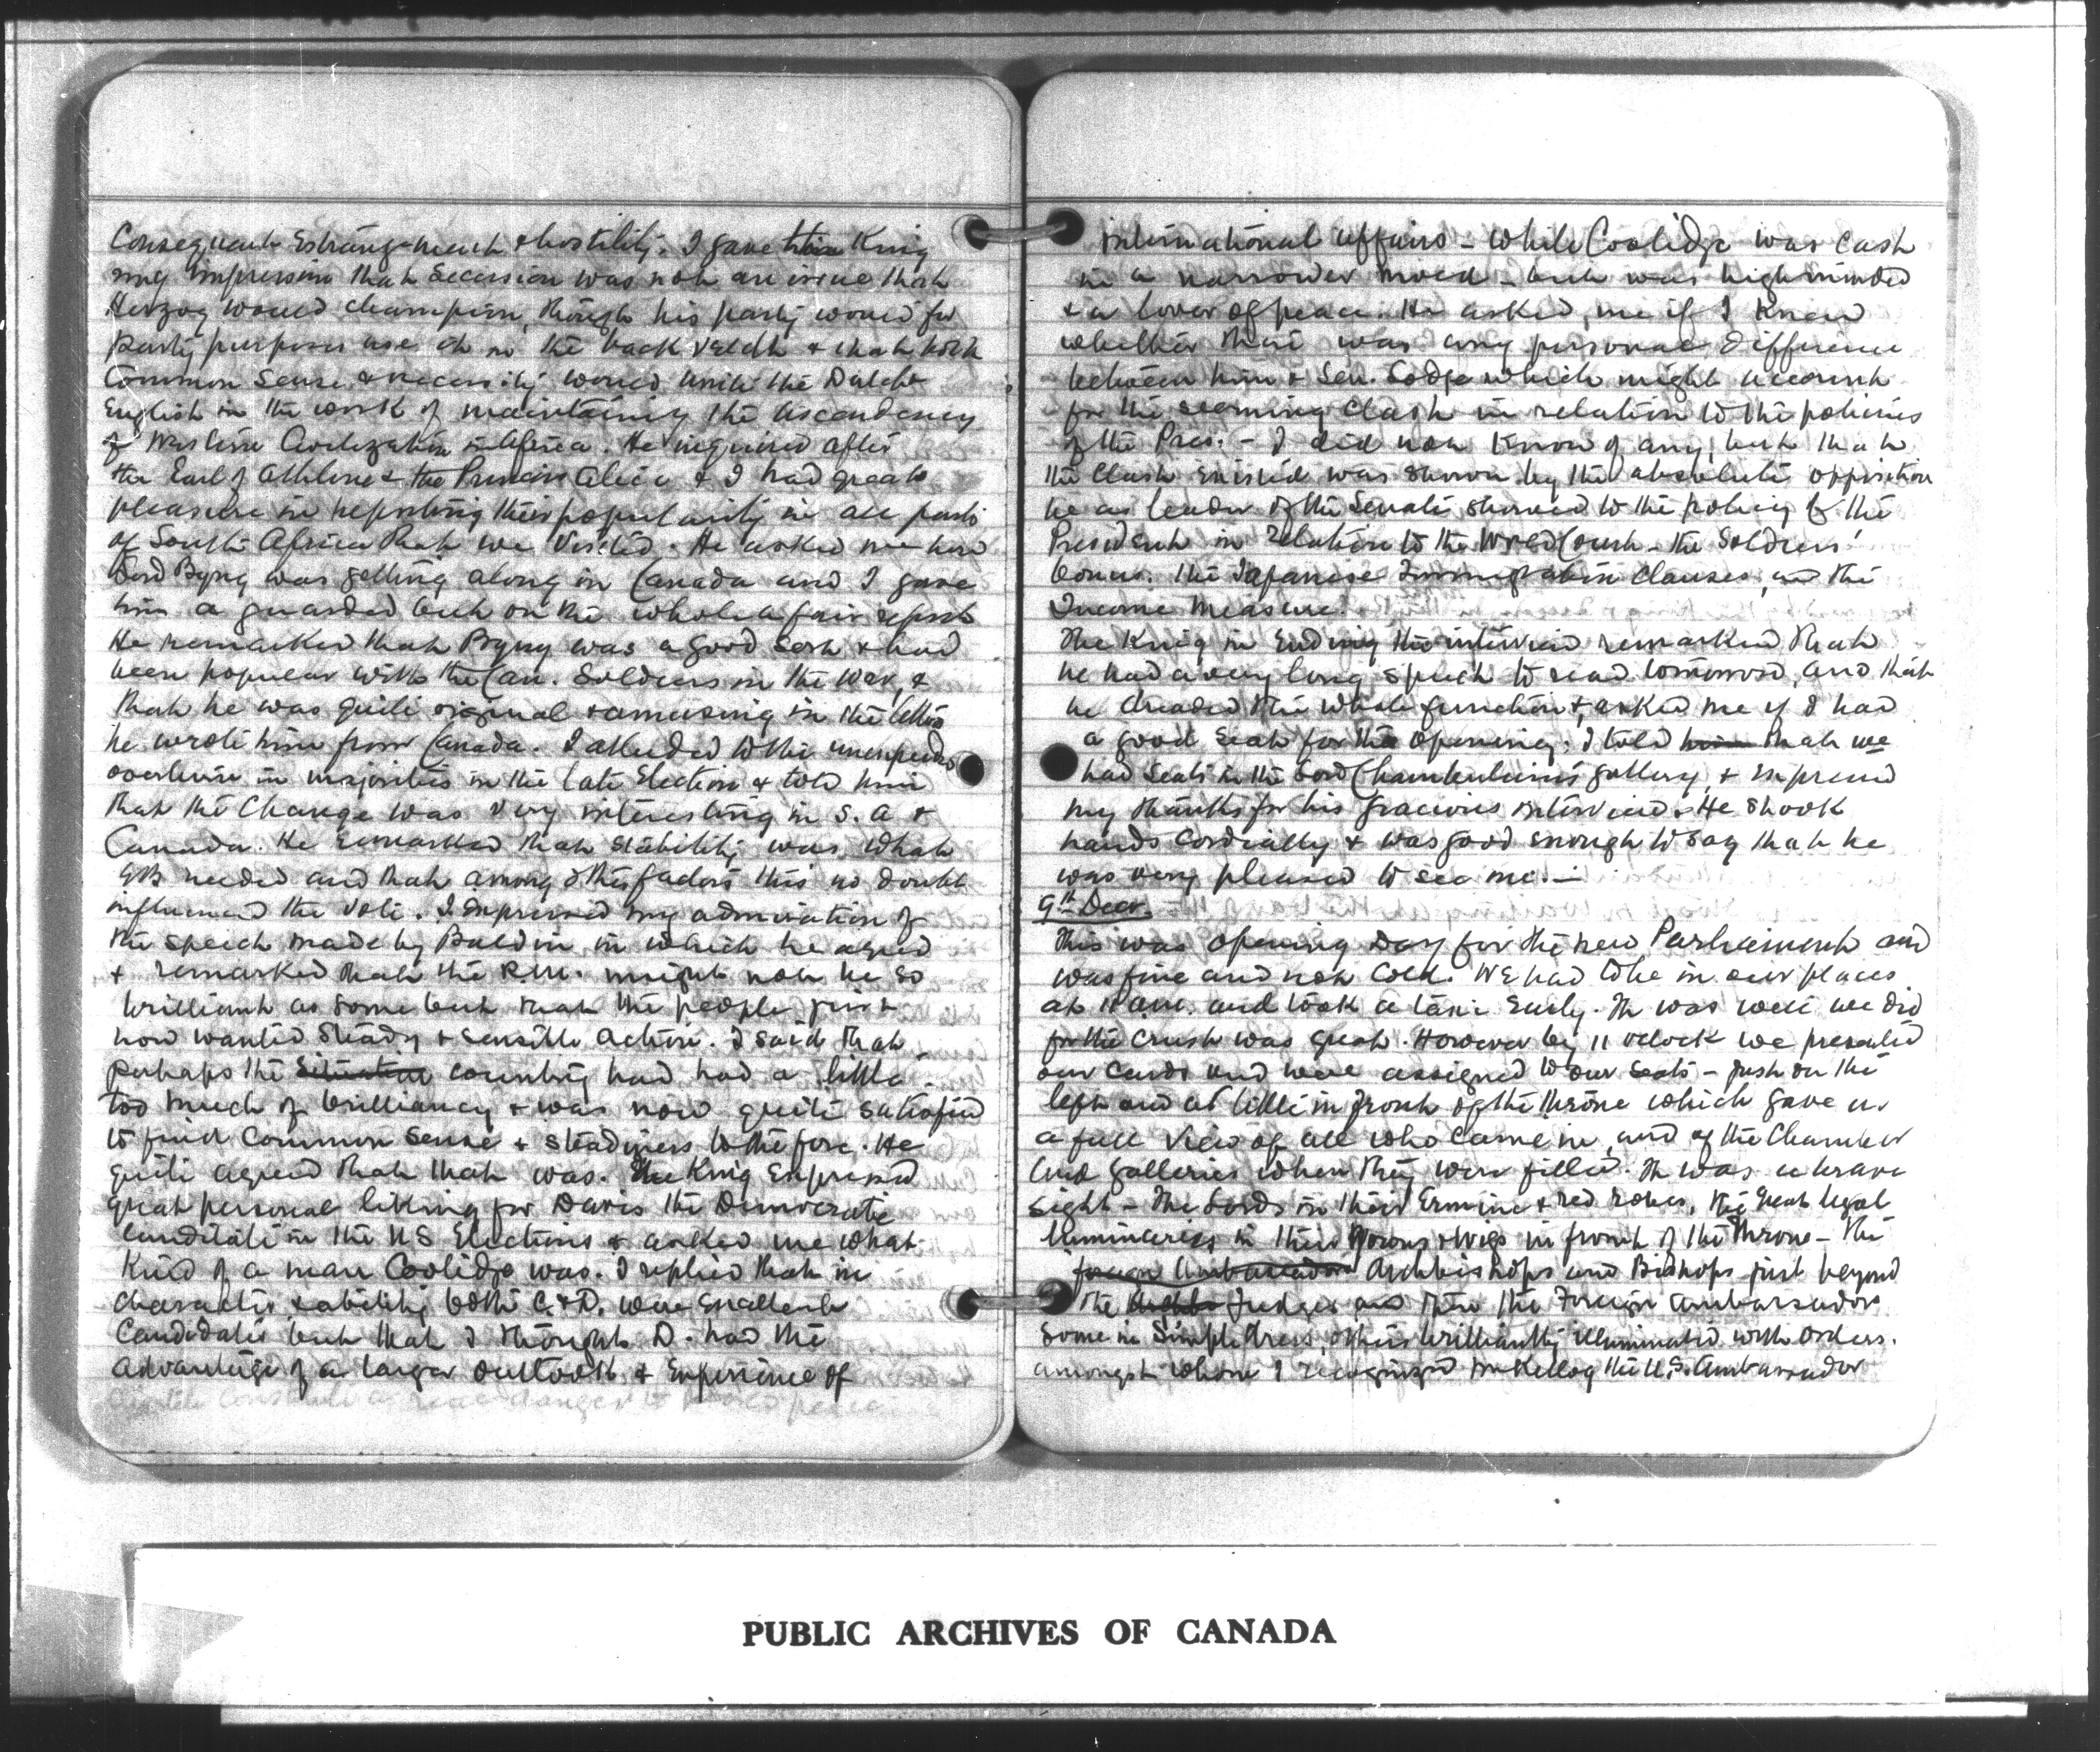 Consequent Estrangement & hostility. I gave the King
my impression that Secession was not an issue that
Herzog would champion, though his party would for
party purposes use it in the back veldt & that both
Common Sense & necessity would unite the Dutch &
English in the work of maintaining the ascendency
of Western Civilization in Africa. He inquired after
the Earl of Athlone & the Princess Alice & I had great
pleasure in reporting their popularity in all parts
of South Africa that we visited. He asked me how
Lord Byng was getting along in Canada and I gave
him a guarded but on the whole a fair report
He remarked that Byng was a good sort & had
been popular with the Can. Soldiers in the War, &
that he was quite original & amusing in the letters
he wrote him from Canada. I alluded to the unexpected
overturn in majorities in the late Election & told him
that the Change was very interesting in S. A &
Canada. He remarked that stability was what
GB needed and that among other factors this no doubt
influenced the vote. I expressed my admiration of
the speech made by Baldwin in which he agreed
& remarked that the P.M. might not be so
brilliant as some but that the people just
now wanted Steady & sensible action. I said that
perhaps the situation country had had a little
too much of brilliancy & was now quite satisfied
to find Common Sense & steadiness to the fore. He
quite agreed that that was. The King Expressed
great personal liking for Davis the Democratic
Candidate in the US Elections & asked me what
kind of a man Coolidge was. I replied that in
character & ability both C. & D. were Excellent
Candidates but that I thought D. had the
advantage of a larger outlook & Experience of
international affairs - while Coolidge was cast
in a narrower mould - but was high minded
& a lover of peace. He asked me if I knew
whether there was any personal difference
between him & Sen. Lodge which might account
for the seeming clash in relation to the policies
of the Pres. - I did not know of any, but that
the clash existed was shown by the absolute opposition
he as leader of the Senate showed to the policy of the
President in relation to the World Court - the Soldiers'
bonus. the Japanese Immigration Clauses, and the
Income Measure.
The King in Ending the interview remarked that
he had a very long speech to read tomorrow, and that
he dreaded the whole function &, asked me if I had
a good seat for the Opening. I told him that we
had Seats in the Lord Chamberlain's gallery, & Expressed
my thanks for his gracious interview. He shook
hands cordially & was good enough to say that he
was very pleased to see me. -
9th Decr.
This was opening Day for the new Parliament and
was fine and not cold. We had to be in our places
at 11 a.m. and took a taxi Early. It was well we did
for the crush was great. However by 11 oclock we presented
our cards and were assigned to our seats - just on the
left and a little in front of the throne which gave us
a full view of all who came in, and of the Chamber
and galleries when they were filled. It was a brave
sight - The Lords in their Ermine & red robes, the great legal
luminaries in their gowns & wigs in front of the throne - the
foreign Ambassadors Archbishops and Bishops just beyond
the Judges and then the Foreign Ambassadors
Some in Simple dress, others brilliantly illuminated with orders.
amongst whom I recognized Mr Kellog the U.S. Ambassador
PUBLIC ARCHIVES OF CANADA